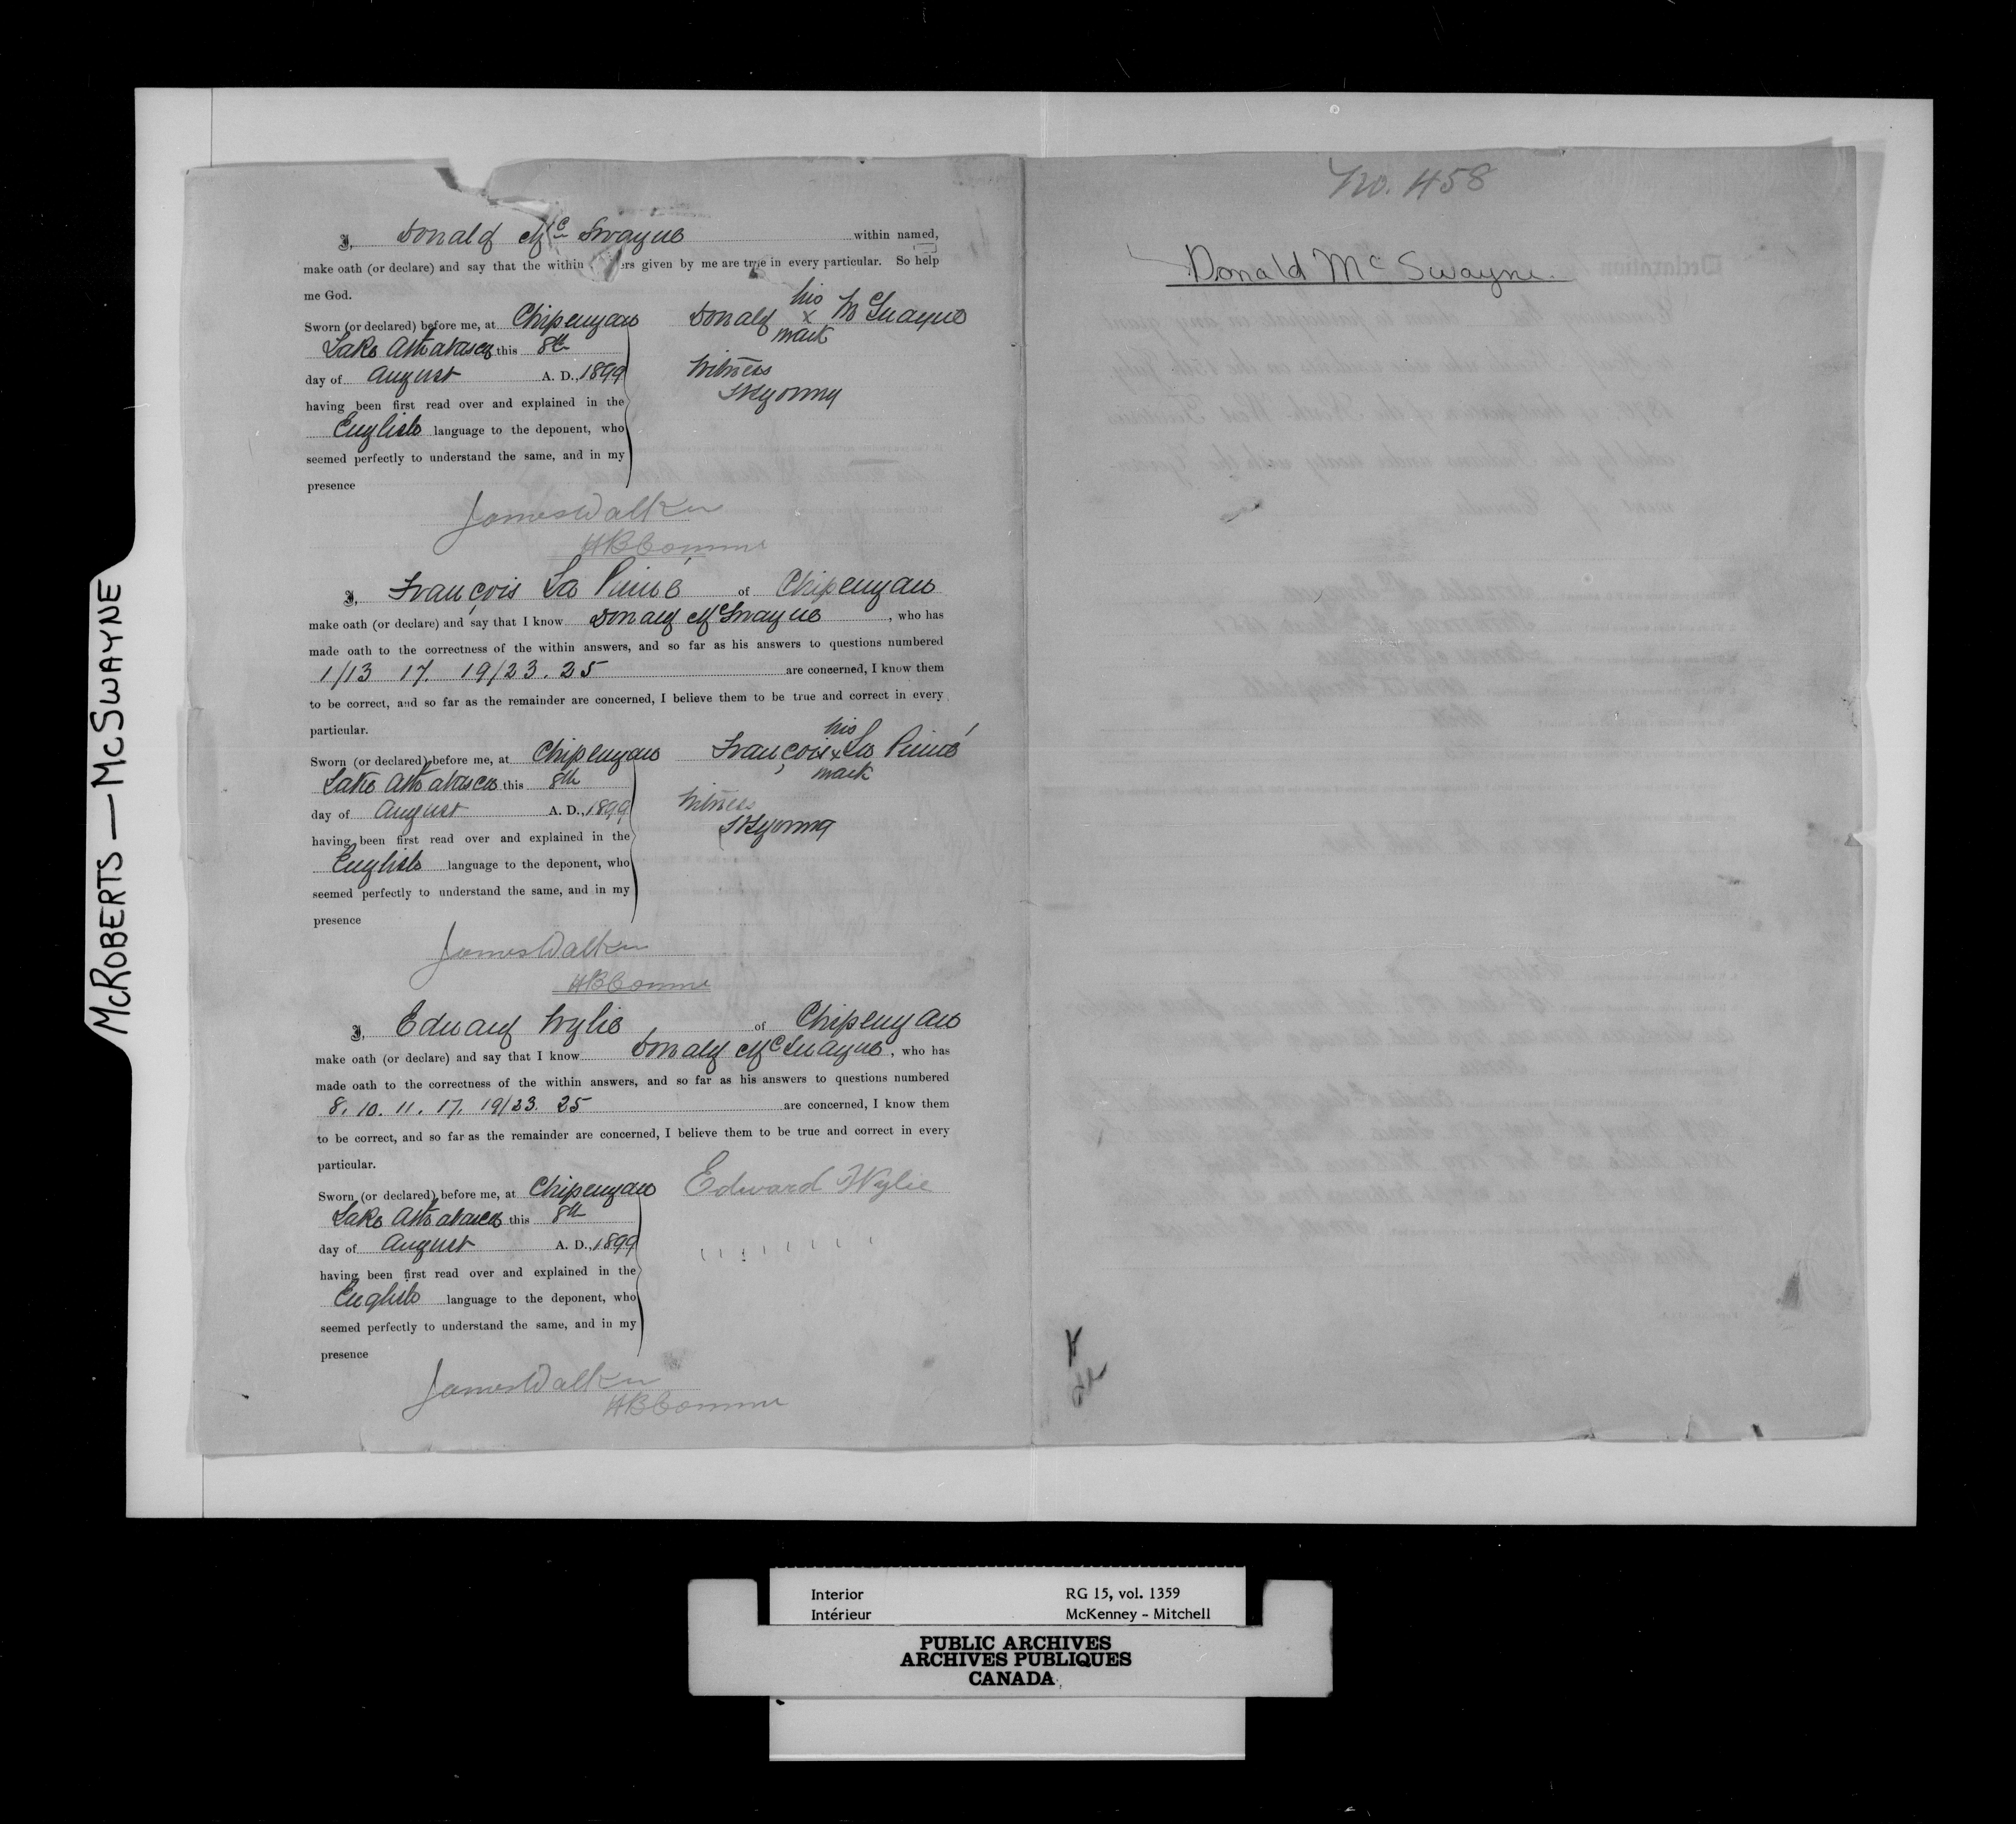 McROBERTS — McSWAYNE
I, Donald McSwayne within named,
make oath (or declare) and say that the within ers given by me are true in every particular. So help
me God.
Sworn (or declared) before me, at Chipewyan
Lake Athabasca this 8th
day of August A. D., 1899
having been first read over and explained in the
English language to the deponent, who
seemed perfectly to understand the same, and in my
presence
Donald his x McSwayne
mark
Witness
James Walker
HB Comm
I, François La Puise of Chipewyan
make oath (or declare) and say that I know Donald McSwayne, who has
made oath to the correctness of the within answers, and so far as his answers to questions numbered
1/13 17. 19/23. 25 are concerned, I know them
to be correct, and so far as the remainder are concerned, I believe them to be true and correct in every
particular.
Sworn (or declared) before me, at Chipewyan
Lake Athabasca this 8th
day of August A. D., 1899
having been first read over and explained in the
English language to the deponent, who
seemed perfectly to understand the same, and in my
presence
François his x La
mark
Witness
James Walker
HB Comm
I, Edward Wylie of Chipewyan
make oath (or declare) and say that I know Donald McSwayne, who has
made oath to the correctness of the within answers, and so far as his answers to questions numbered
8. 10. 11. 17. 19/23. 25 are concerned, I know them
to be correct, and so far as the remainder are concerned, I believe them to be true and correct in every
particular.
Sworn (or declared) before me, at Chipewyan
Lake Athabasca this 8th
day of August A. D., 1899
having been first read over and explained in the
English language to the deponent, who
seemed perfectly to understand the same, and in my
presence
Edward Wylie
James Walker
HB Comm
No. 458
Donald McSwayne.
Interior RG 15, vol. 1359
Intérieur McKenney - Mitchell
PUBLIC ARCHIVES
ARCHIVES PUBLIQUES
CANADA